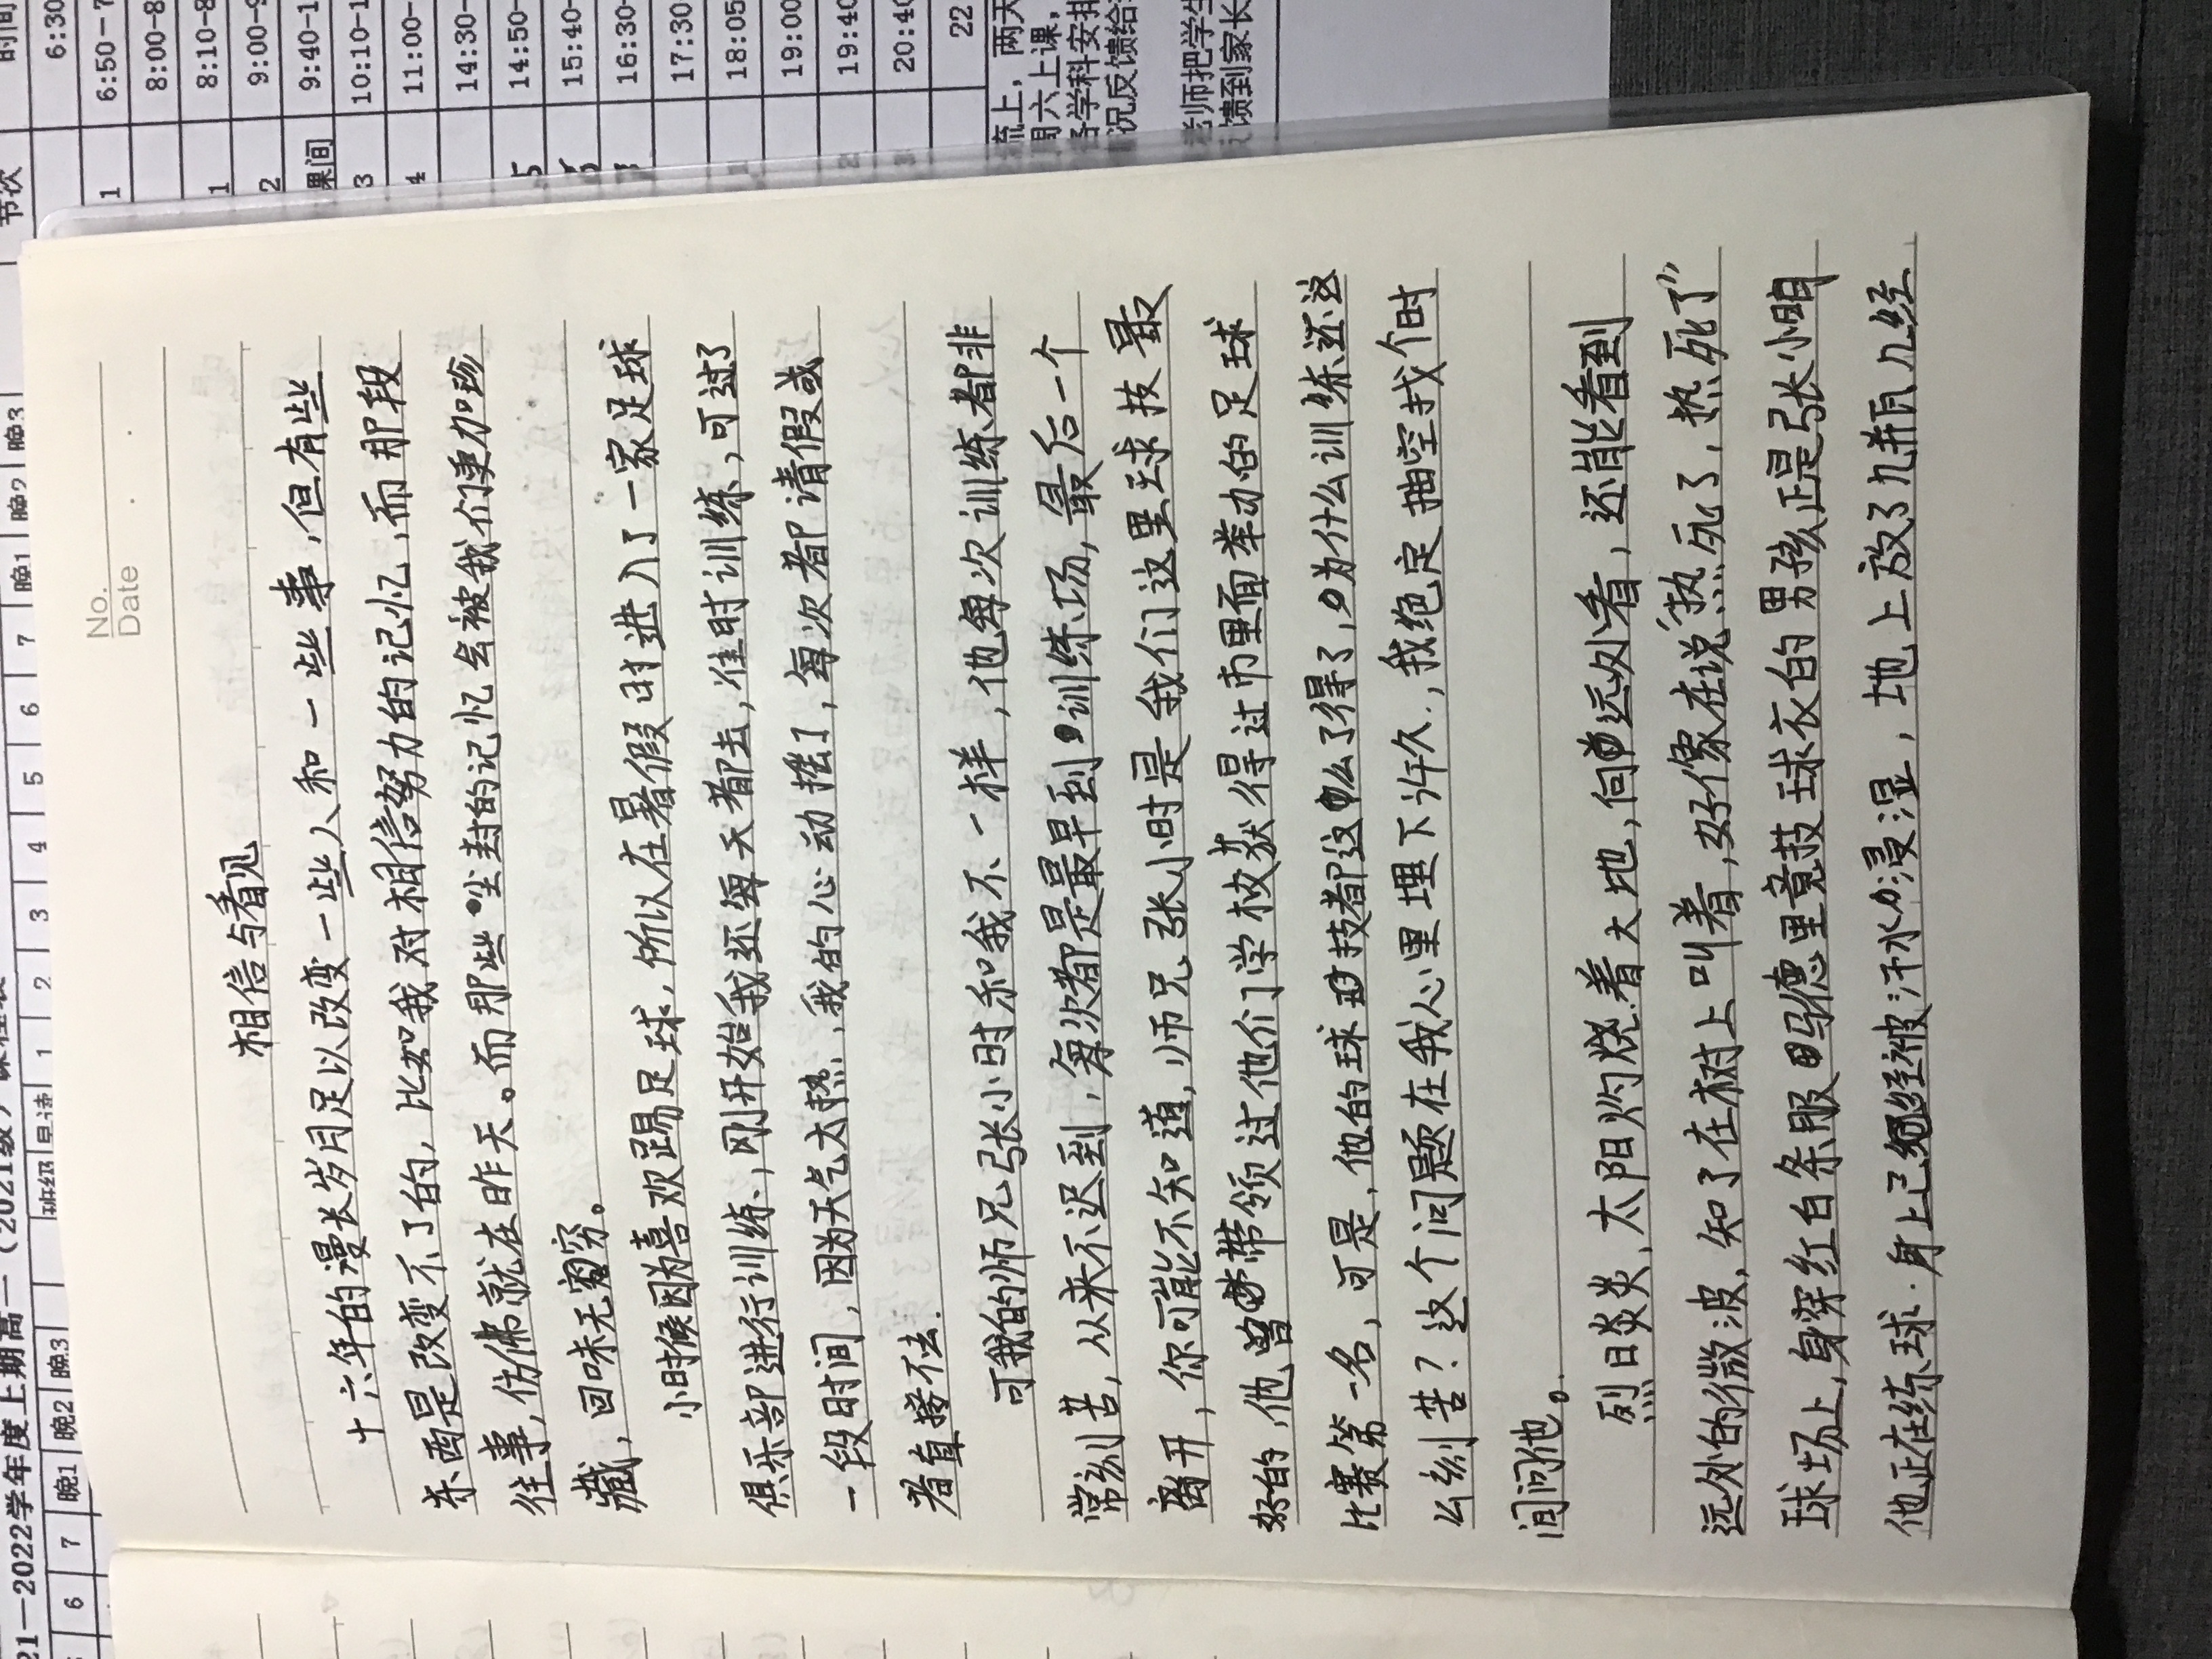 相信与看见
十六年的漫长岁月足以改变一些人和一些事,但有些
东西是改变不了的,比如我对相信努力的记忆,而那段
往事,仿佛就在昨天。而那些尘封的记忆会被我们更加珍
藏,回味无穷。
小时候因为喜欢踢足球,所以在暑假时进入了一家足球
俱乐部进行训练,刚开始我还每天都去,准时训练,可过了
一段时间,因为天气太热,我的心动摇了,每次都请假或
者直接不去.
可我的师兄张小时和我不一样,他每次训练都非
常刻苦,从来不迟到,每次都是最早到训练场,最后一个
离开,你可能不知道,师兄张小时是我们这里球技最
好的,他曾带领过他们学校获得过市里面举办的足球
比赛第一名,可是,他的球技都这么了得了,为什么训练还这
么刻苦?这个问题在我心里埋下许久,我绝定抽空找个时
间问他。
烈日炎炎,太阳灼烧着大地,向远处看,还能看到
远处的微波,知了在树上叫着,好像在说“热死了,热死了”
球场上,身穿红白条服马德里竞技球衣的男孩正是张小时
他正在练球.身上已经被汗水浸湿,地上放了几瓶几经
No.
Date
21—2022学年度上期高一(2021级)
班级
早读
1
2
3
4
5
6
7
晚1
晚2
晚3
6
7
晚1
晚2
晚3
节次
时间
6:30
1
6:50-7
8:00-8
1
8:10-8
2
9:00-9
课间
9:40-1
3
10:10-1
4
11:00-
14:30-
5
14:50-
15:40-
16:30-
17:30
18:05
19:00
19:40
20:40
22
流上,两天
周六上课,
各学科安排
况反馈给
老师把学生
馈到家长